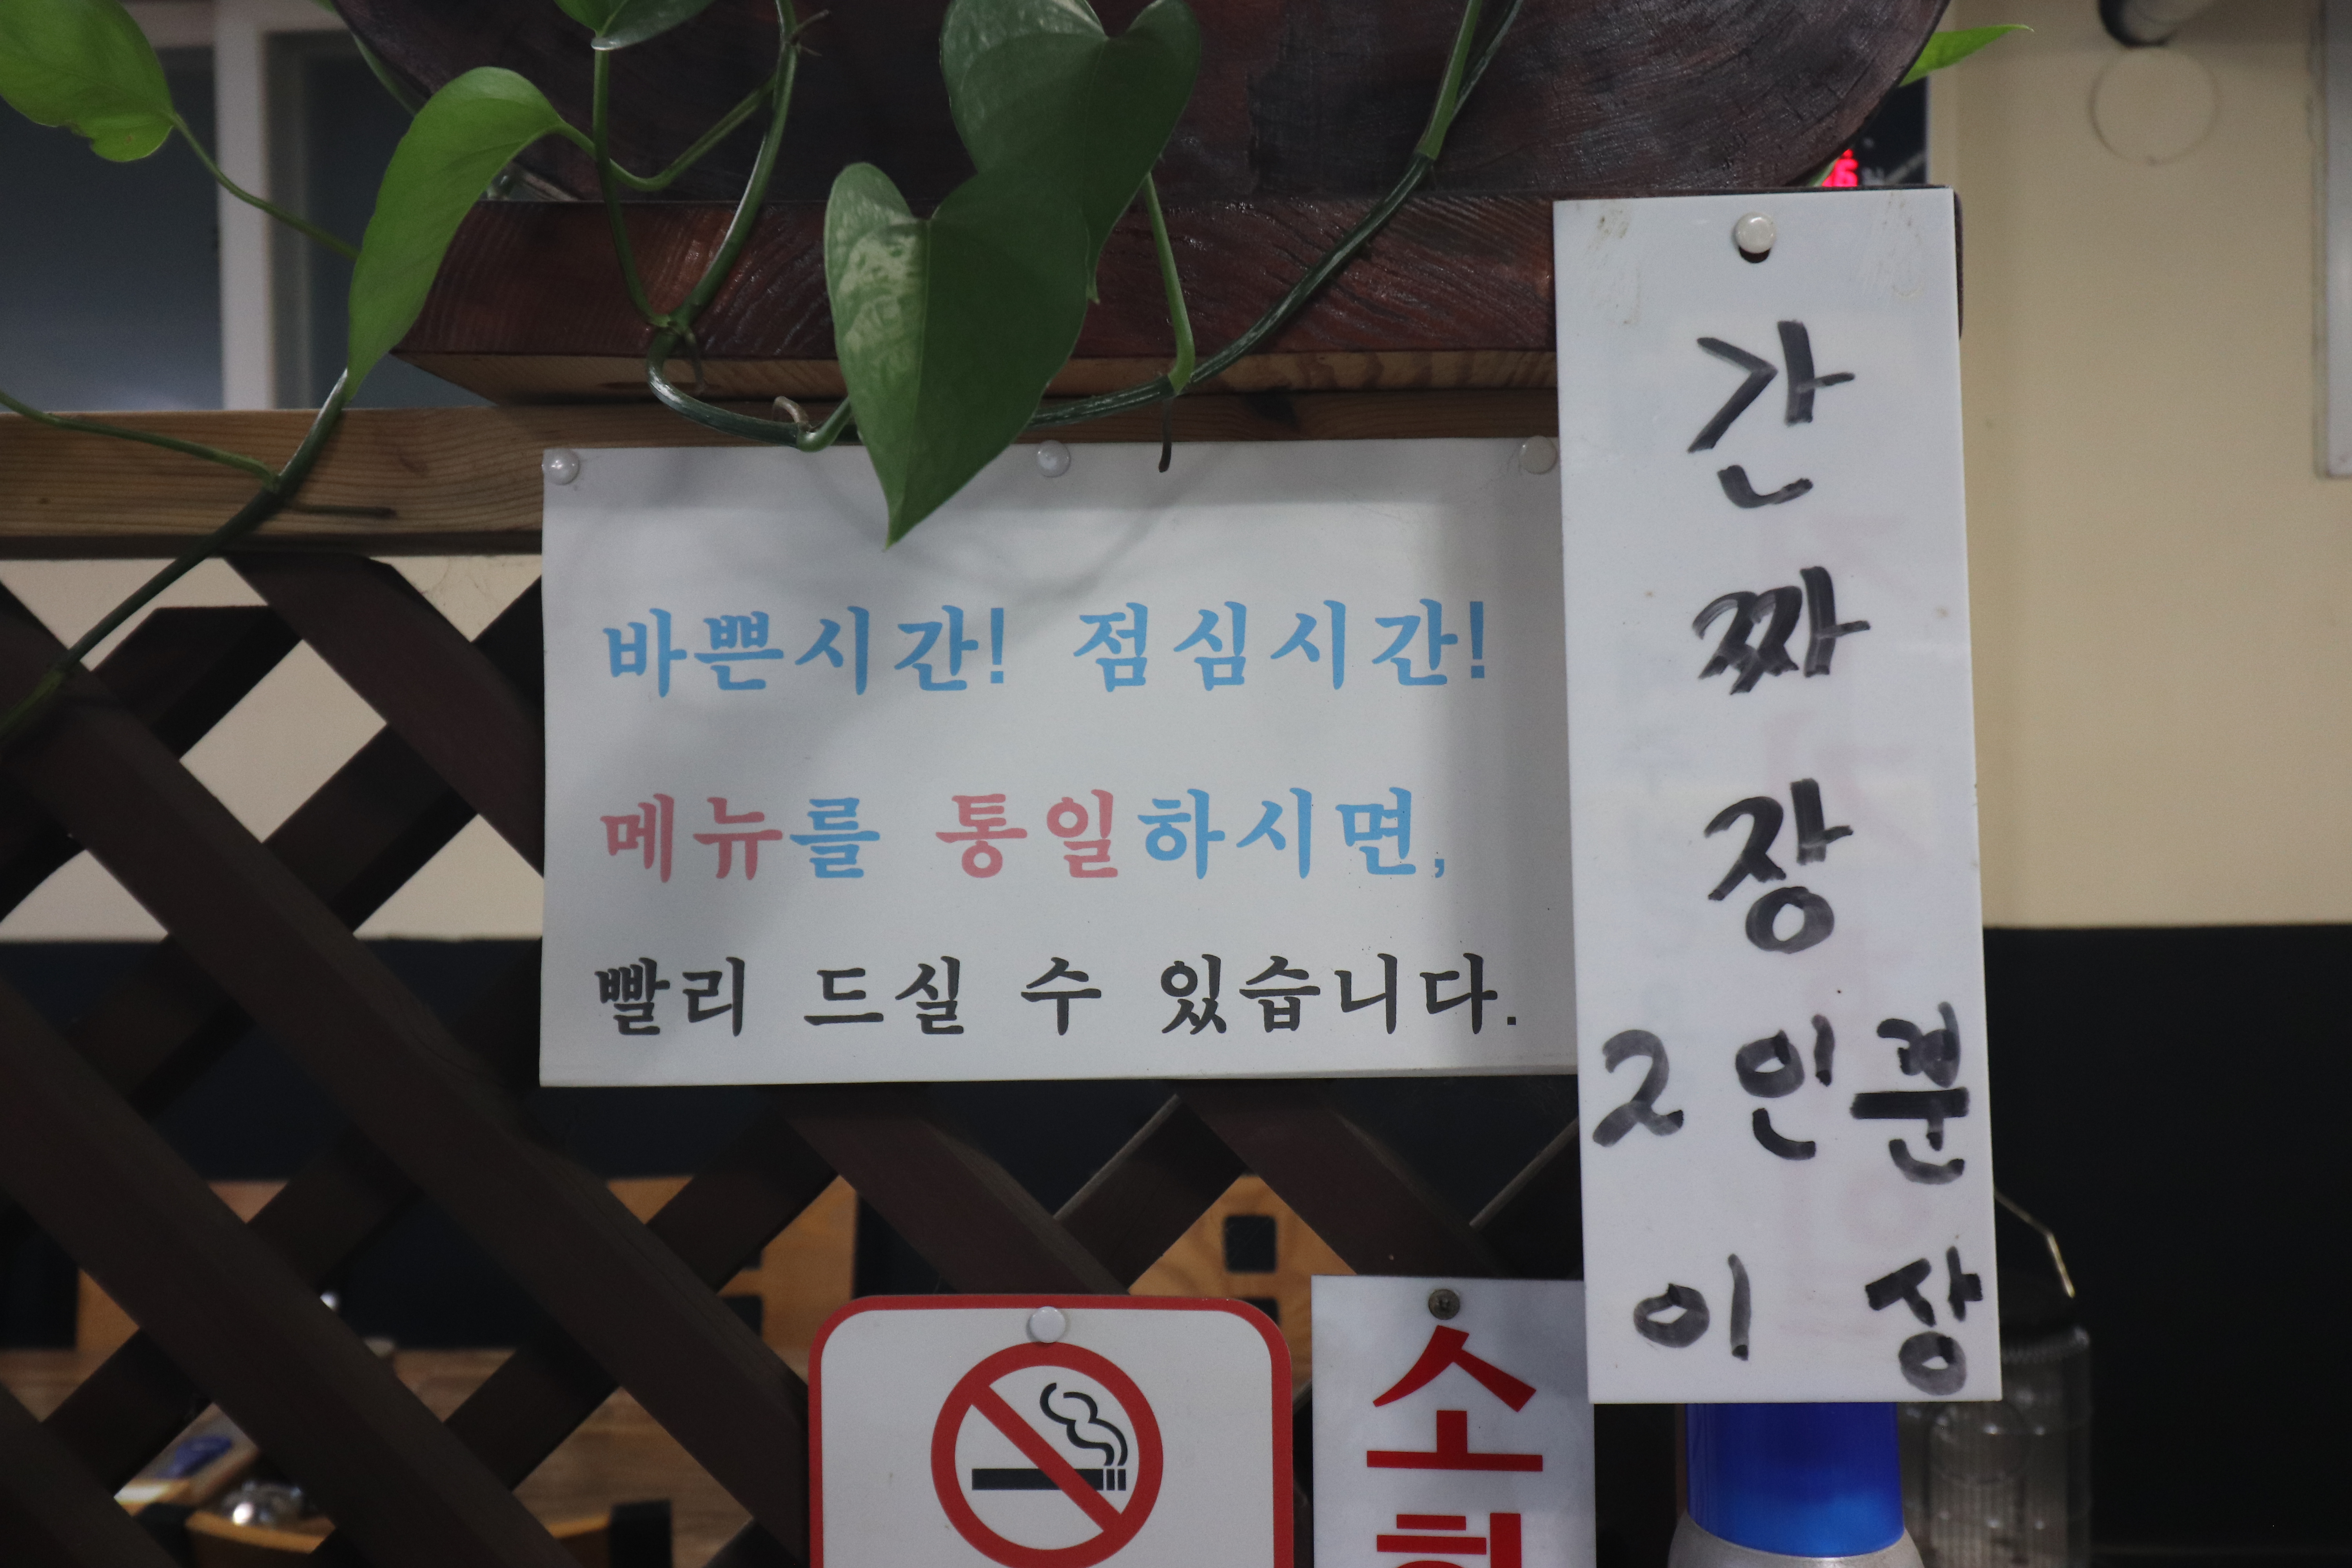 바쁜시간! 점심시간!
메뉴를 통일하시면,
빨리 드실 수 있습니다.
간
짜
장
2인분
이상
소